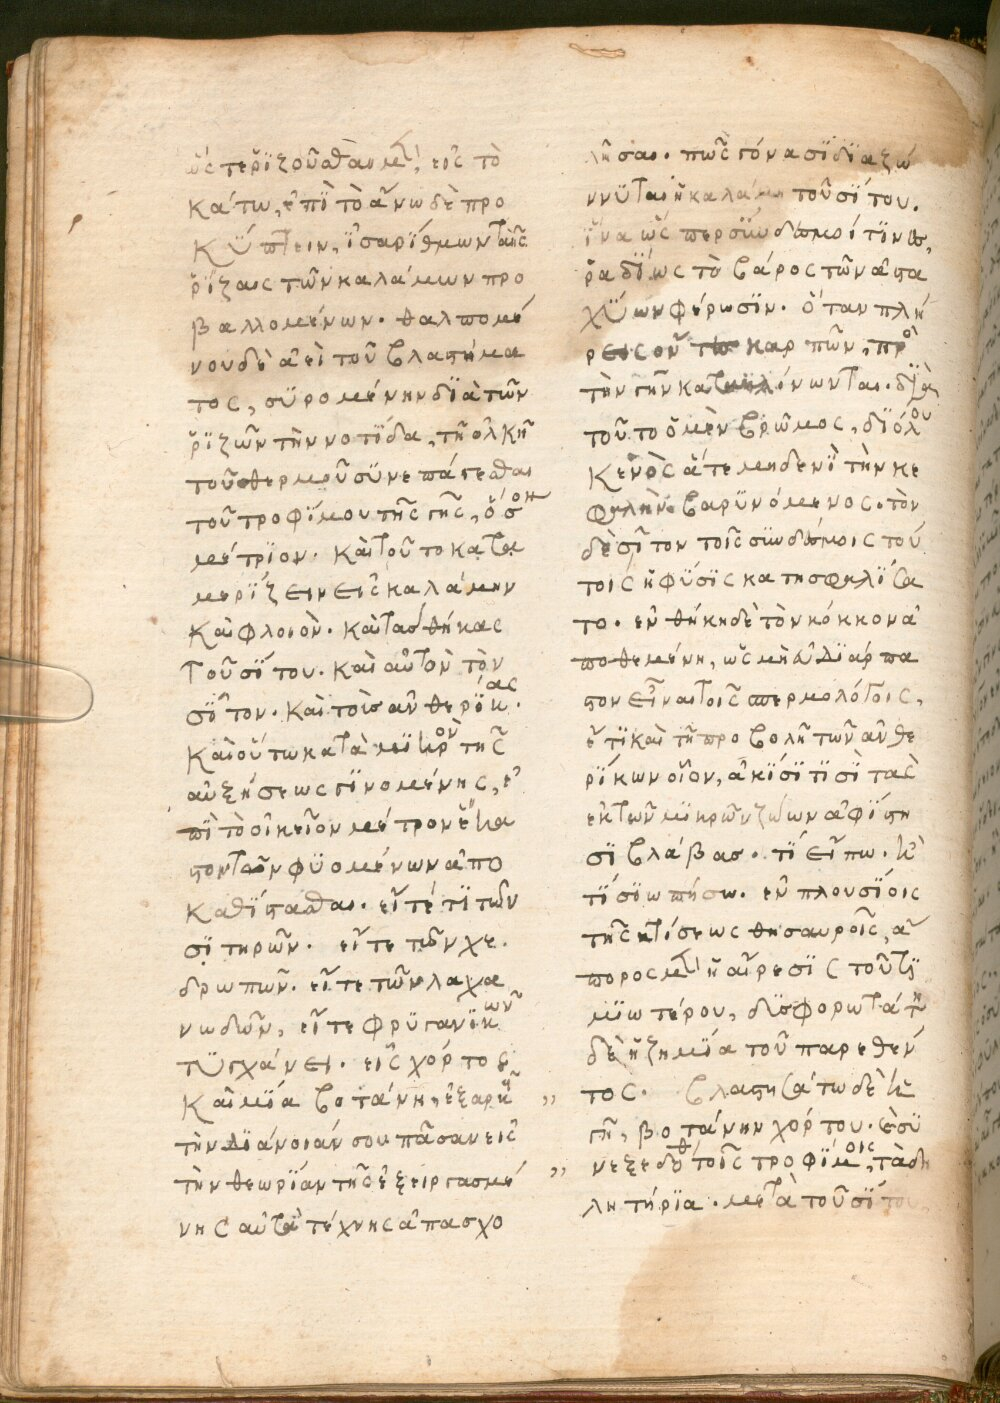 ὥς τε ῥϊζοῦσθαι μὲν, εἰς τὸ
κάτω, ἐπῒ τὸ ἄνω δὲ προ
κύπτειν, ἰσαρίθμων ταῖς
ῥίζαις τῶν καλάμων προ
βαλλομένων· θαλπομέ
νου δὲ ἀεὶ τοῦ βλαστήμα
τος, συρομένην διὰ τῶν
ῥϊζῶν τὴν νοτίδα, τῇ ὁλκῇ
τοῦ θερμοῦ συνεπάγεσθαι
τοῦ τροφίμου τῆς γῆς, ὅσον
μέτριον· καὶ τοῦτο κατα
μερίζειν εἰς καλάμην
καὶ φλοιὸν· καὶ τὰς θήκας
τοῦ σίτου· καὶ αὐτὸν τὸν
σῖτον· καὶ τοὺς ἀνθερίκας·
καὶ οὕτω κατὰ μικρὸν τῆς
αὐξήσεως γινομένης, ἐ
πὶ τὸ οἰκεῖον μέτρον ἕκα
στον τῶν φυομένων ἀπο
καθίστασθαι· εἴτέ τι τῶν
σιτηρῶν· εἴτε τῶν χε
δρωπῶν· εἴτε τῶν λαχα
νωδῶν, εἴτε φρυγανικῶν
τυγχάνει· εἷς χόρτος
καὶ μία βοτάνη, ἐξαρκῇ
τὴν διάνοιάν σου πᾶσαν εἰς
τὴν θεωρίαν τῆς ἐξειργασμέ
νης αὐτὰ τέχνης ἀπασχο
λῆσαι· πῶς γόνασι διαζώ
ννυται ἡ καλάμη τοῦ σίτου·
ἵνα ὥσπερ σύνδεσμοί τινες,
ῥαδίως τὸ βάρος τῶν ἀστα
χύων φέρωσιν· ὅταν πλή
ρεις οὖν τῶν καρπῶν, πρὸς
τὴν γῆν κατακλίνωνται· διὰ
τοῦτο ὁ μὲν βρῶμος, διόλου
κενὸς ἅτε μηδενὶ τὴν κε
φαλὴν βαρυνόμενος· τὸν
δὲ σῖτον τοῖς συνδέσμοις τού
τοις ἡ φύσις κατησφαλίσα
το· ἐν θήκη δὲ τὸν κόκκον ἀ
ποθεμένη, ὡς μὴ εὐδιάρπα
στον εἶναι τοῖς σπερμολόγοις,
ἔτι καὶ τῇ προβολῇ τῶν ἀνθε
ρίκων οἷον, ἀκίσϊ τισὶ τὰς
ἐκ τῶν μικρῶν ζώων ἀφίστη
σι βλάβας· τί εἴπω· καὶ
τί σιωπήσω· ἐν πλουσίοις
τῆς κτίσεως θησαυροῖς, ἄ
πορος μὲν ἡ αἵρεσις τοῦ τι
μιωτέρου, δυσφορωτάτη
δὲ ἡ ζημία τοῦ παρεθέν
τος· βλαστησάτω δὲ ἡ
γῆ, βοτάνην χόρτου· εὐθὺ
νεξεδόθη τοῖς τροφίμοις, τὰ δη
λητήρια· μετὰ τοῦ σίτου